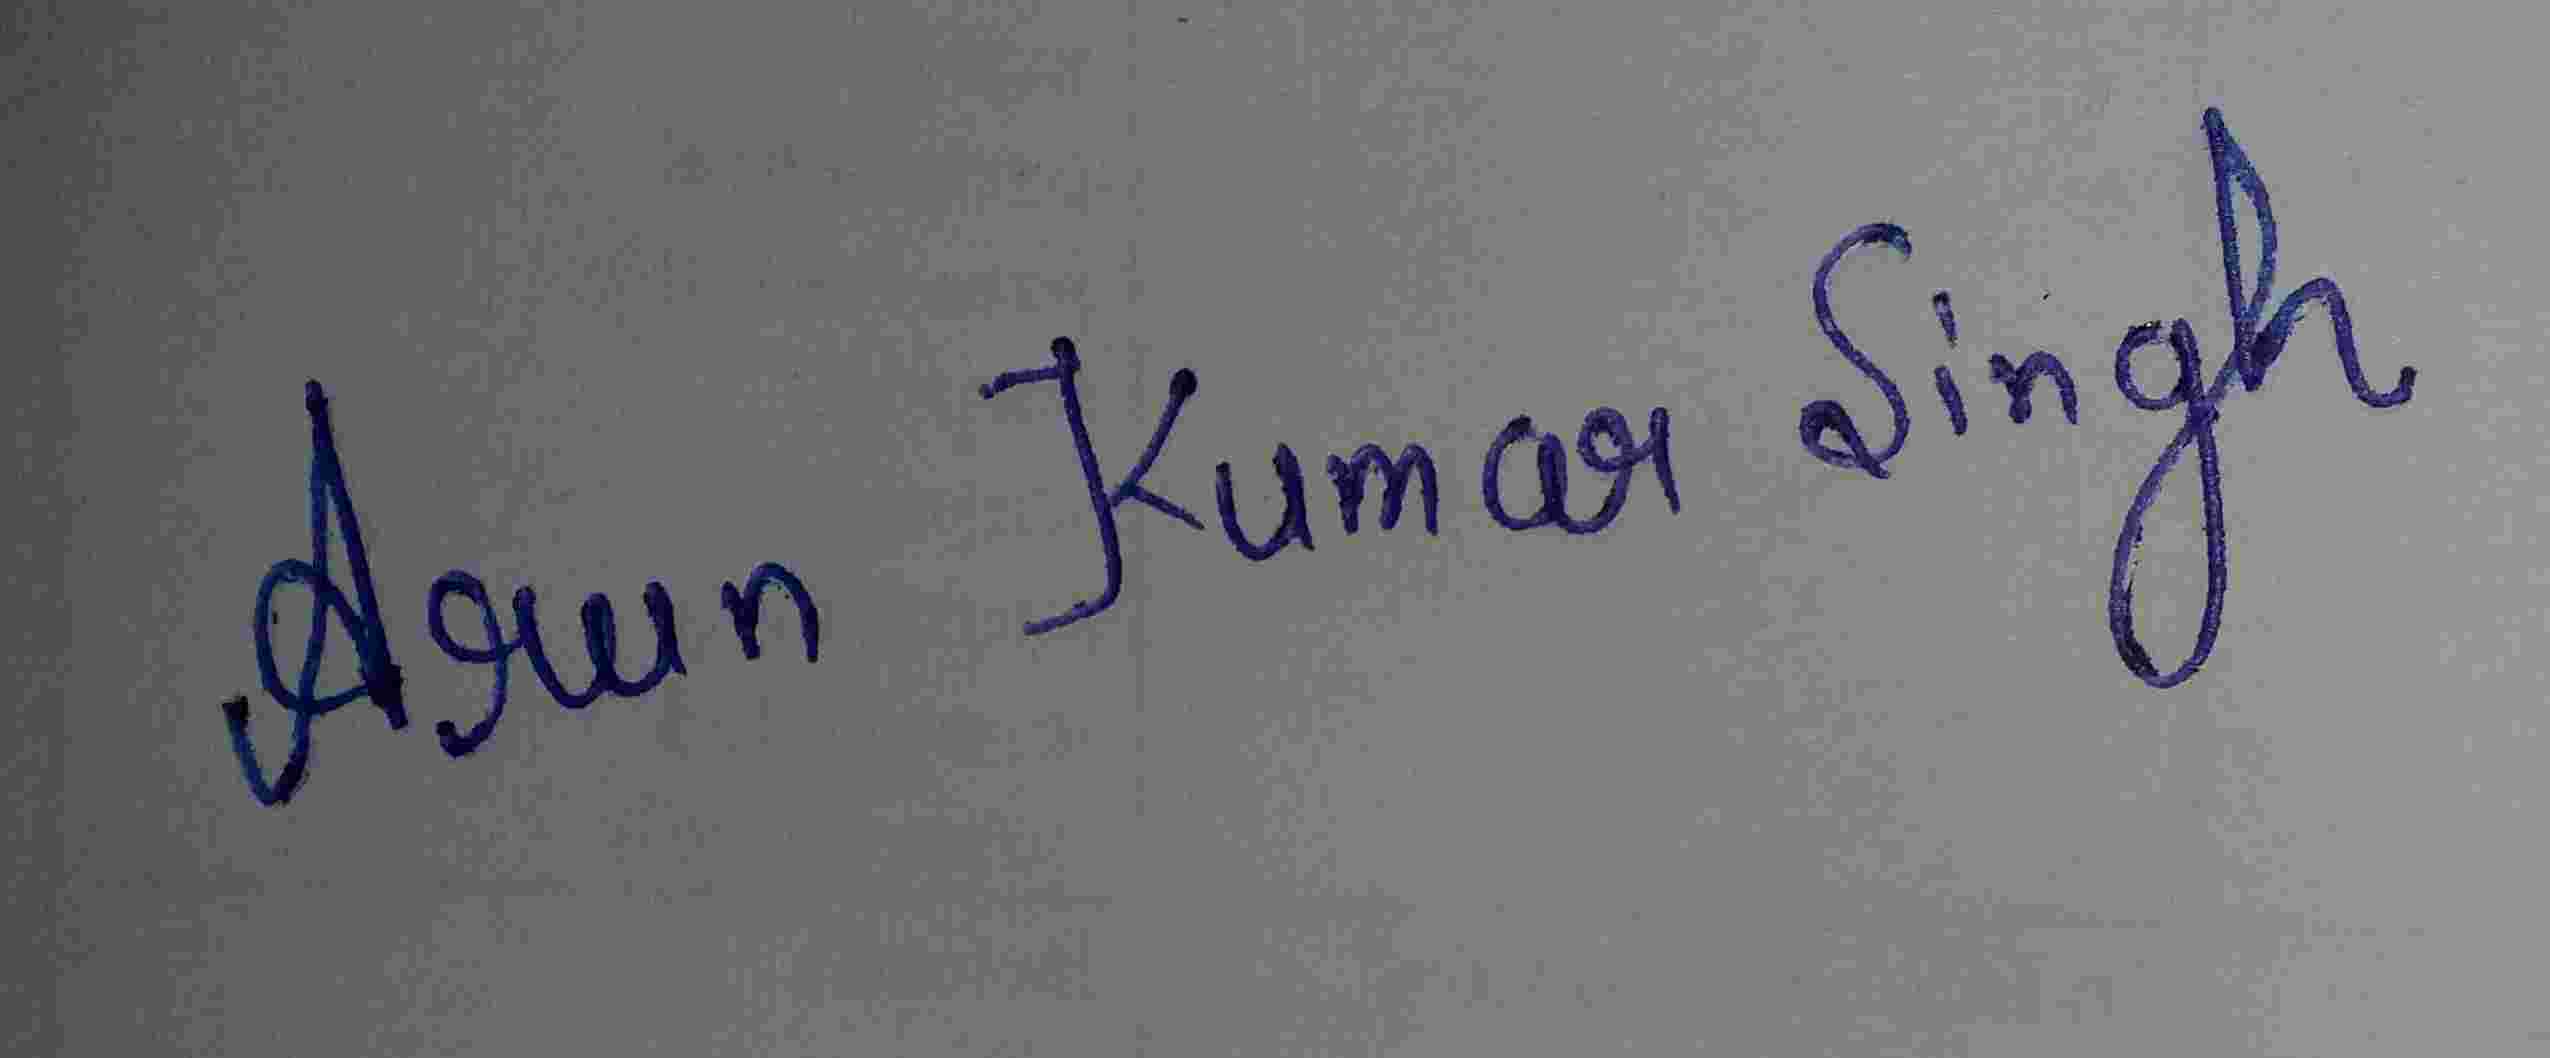 Arun Kumar Singh